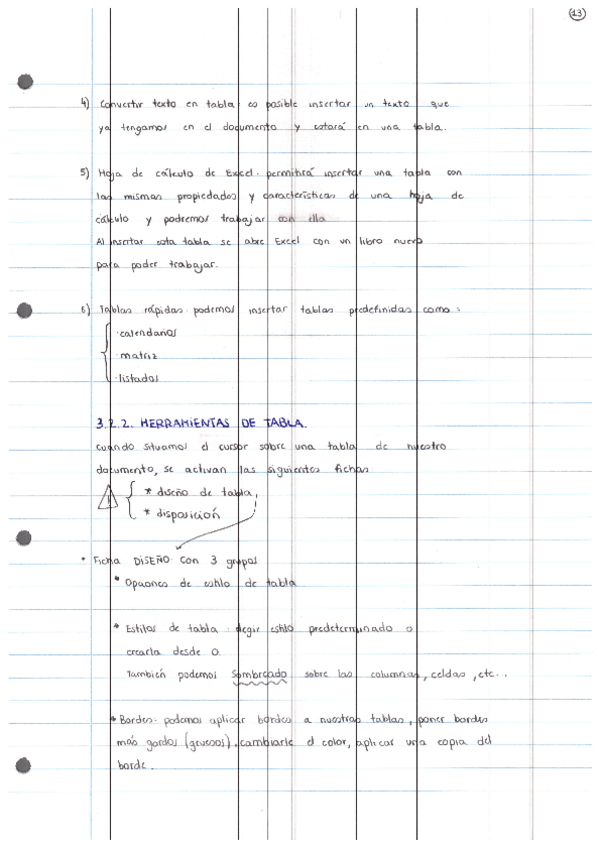 13
4) Convertir texto en tabla: es posible insertar un texto que
ya tengamos en el documento y estará en una tabla.
5) Hoja de cálculo de Excel: permitirá insertar una tabla con
las mismas propiedades y características de una hoja de
cálculo y podremos trabajar con ella
Al insertar esta tabla se abre Excel con un libro nuevo
para poder trabajar.
6) Tablas rápidas: podemos insertar tablas predefinidas como:
·calendarios
·matriz
·listados
3.2.2. HERRAMIENTAS DE TABLA.
cuando situamos el cursor sobre una tabla de nuestro
documento, se activan las siguientes fichas
* diseño de tabla
* disposición
* Ficha DISEÑO: con 3 grupos
* Opciones de estilo de tabla
* Estilos de tabla: elegir estilo predeterminado o
crearla desde 0.
También podemos Sombreado sobre las columnas, celdas, etc...
* Bordes: podemos aplicar bordes a nuestras tablas, poner bordes
más gordos (gruesos), cambiarle el color, aplicar una copia del
borde.